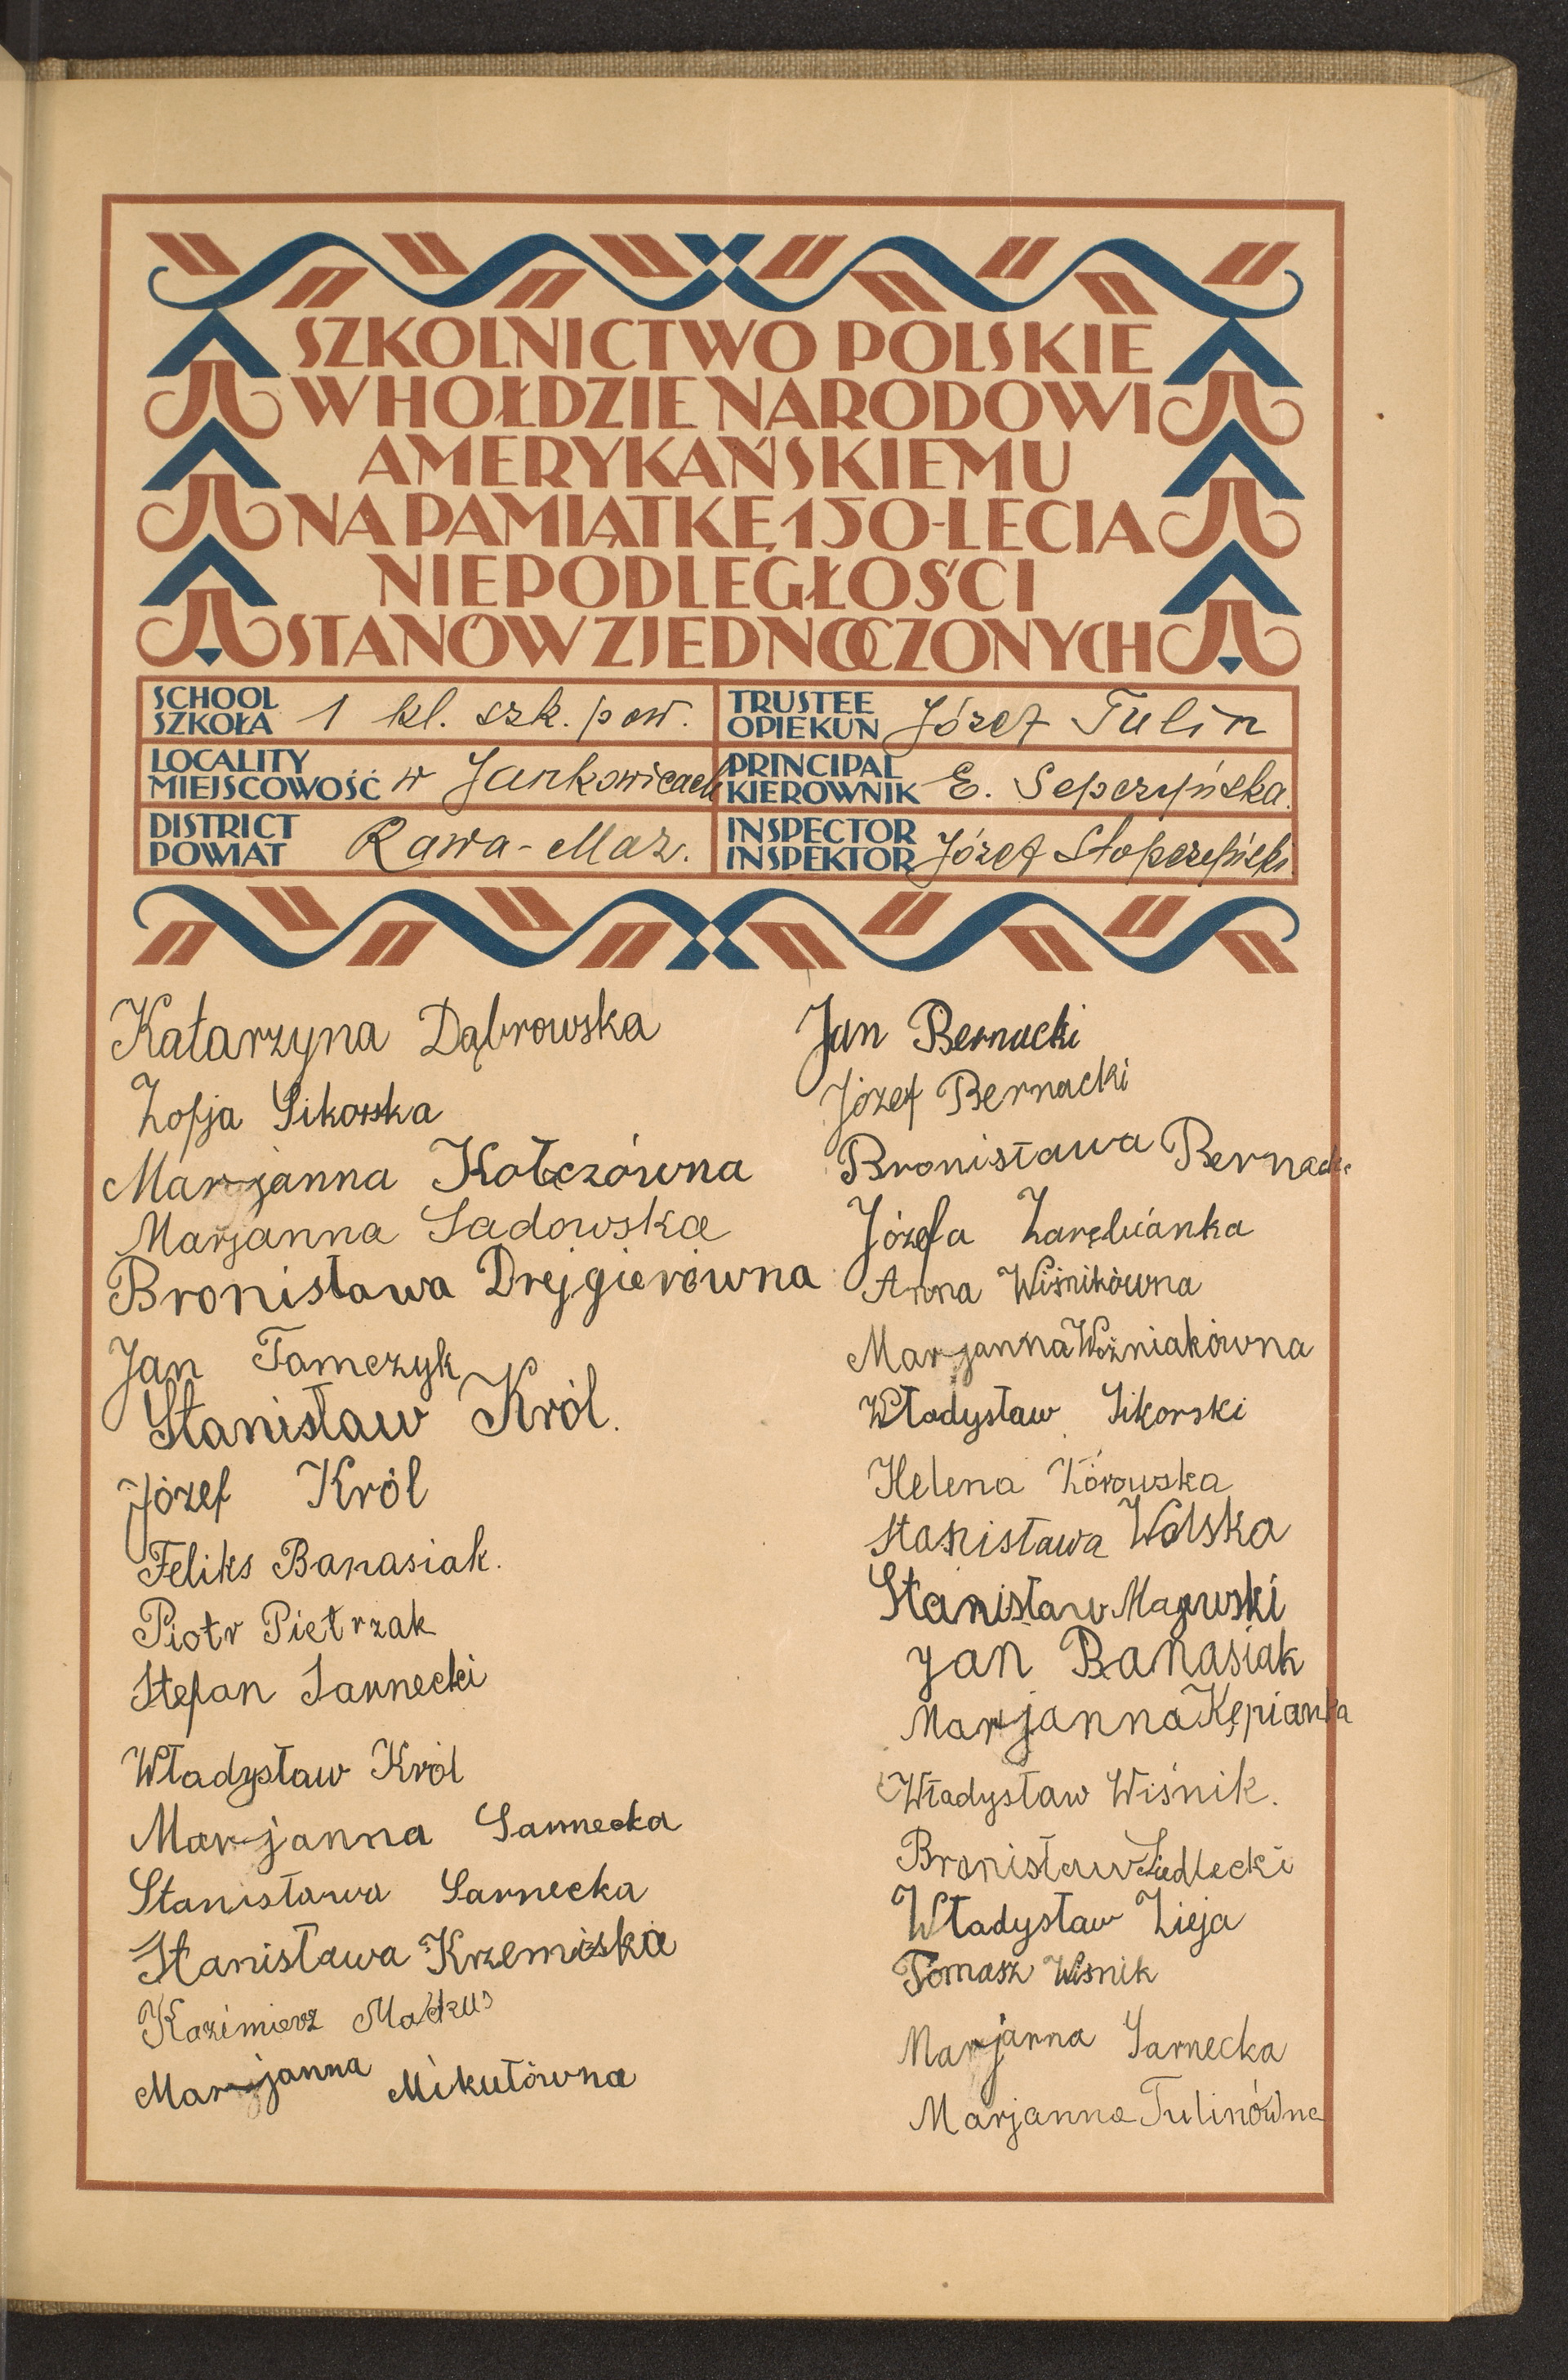 SZKOLNICTWO POLSKIE
W HOŁDZIE NARODOWI
AMERYKAŃSKIEMU
NA PAMIĄTKĘ 150-LECIA
NIEPODLEGŁOŚCI
STANÓW ZJEDNOCZONYCH
SCHOOL
SZKOŁA 1 kl. szk. pow.
LOCALITY
MIEJSCOWOŚĆ w Jankowicach
DISTRICT
POWIAT Rawa-Maz.
TRUSTEE
OPIEKUN Józef Tulin
PRINCIPAL
KIEROWNIK E. Sepczyńska.
INSPECTOR
INSPEKTOR Józef
Katarzyna Dąbrowska
Zofja Sikorska
Marjanna Kołczówna
Marjanna Sadowska
Bronisława Drejgierówna
Jan Tomczyk
Stanisław Król.
Józef Król
Feliks Banasiak.
Piotr Pietrzak
Stefan Sarnecki
Władysław Król
Marjanna Sarnecka
Stanisława Sarnecka
Stanisława Krzemiska
Kazimierz
Marjanna Mikułówna
Jan Bernacki
Józef Bernacki
Bronisława Bernacka
Józefa Zarębianka
Anna Wiśnikówna
Marjanna Woźniakówna
Władysław Sikorski
Helena Kórowska
Stanisława Wolska
Stanisław Majewski
Jan Banasiak
Marjanna Kępianka
Władysław Wiśnik.
Bronisław Siedlecki
Władysław Zieja
Tomasz Wiśnik
Marjanna Sarnecka
Marjanna Tulinówna